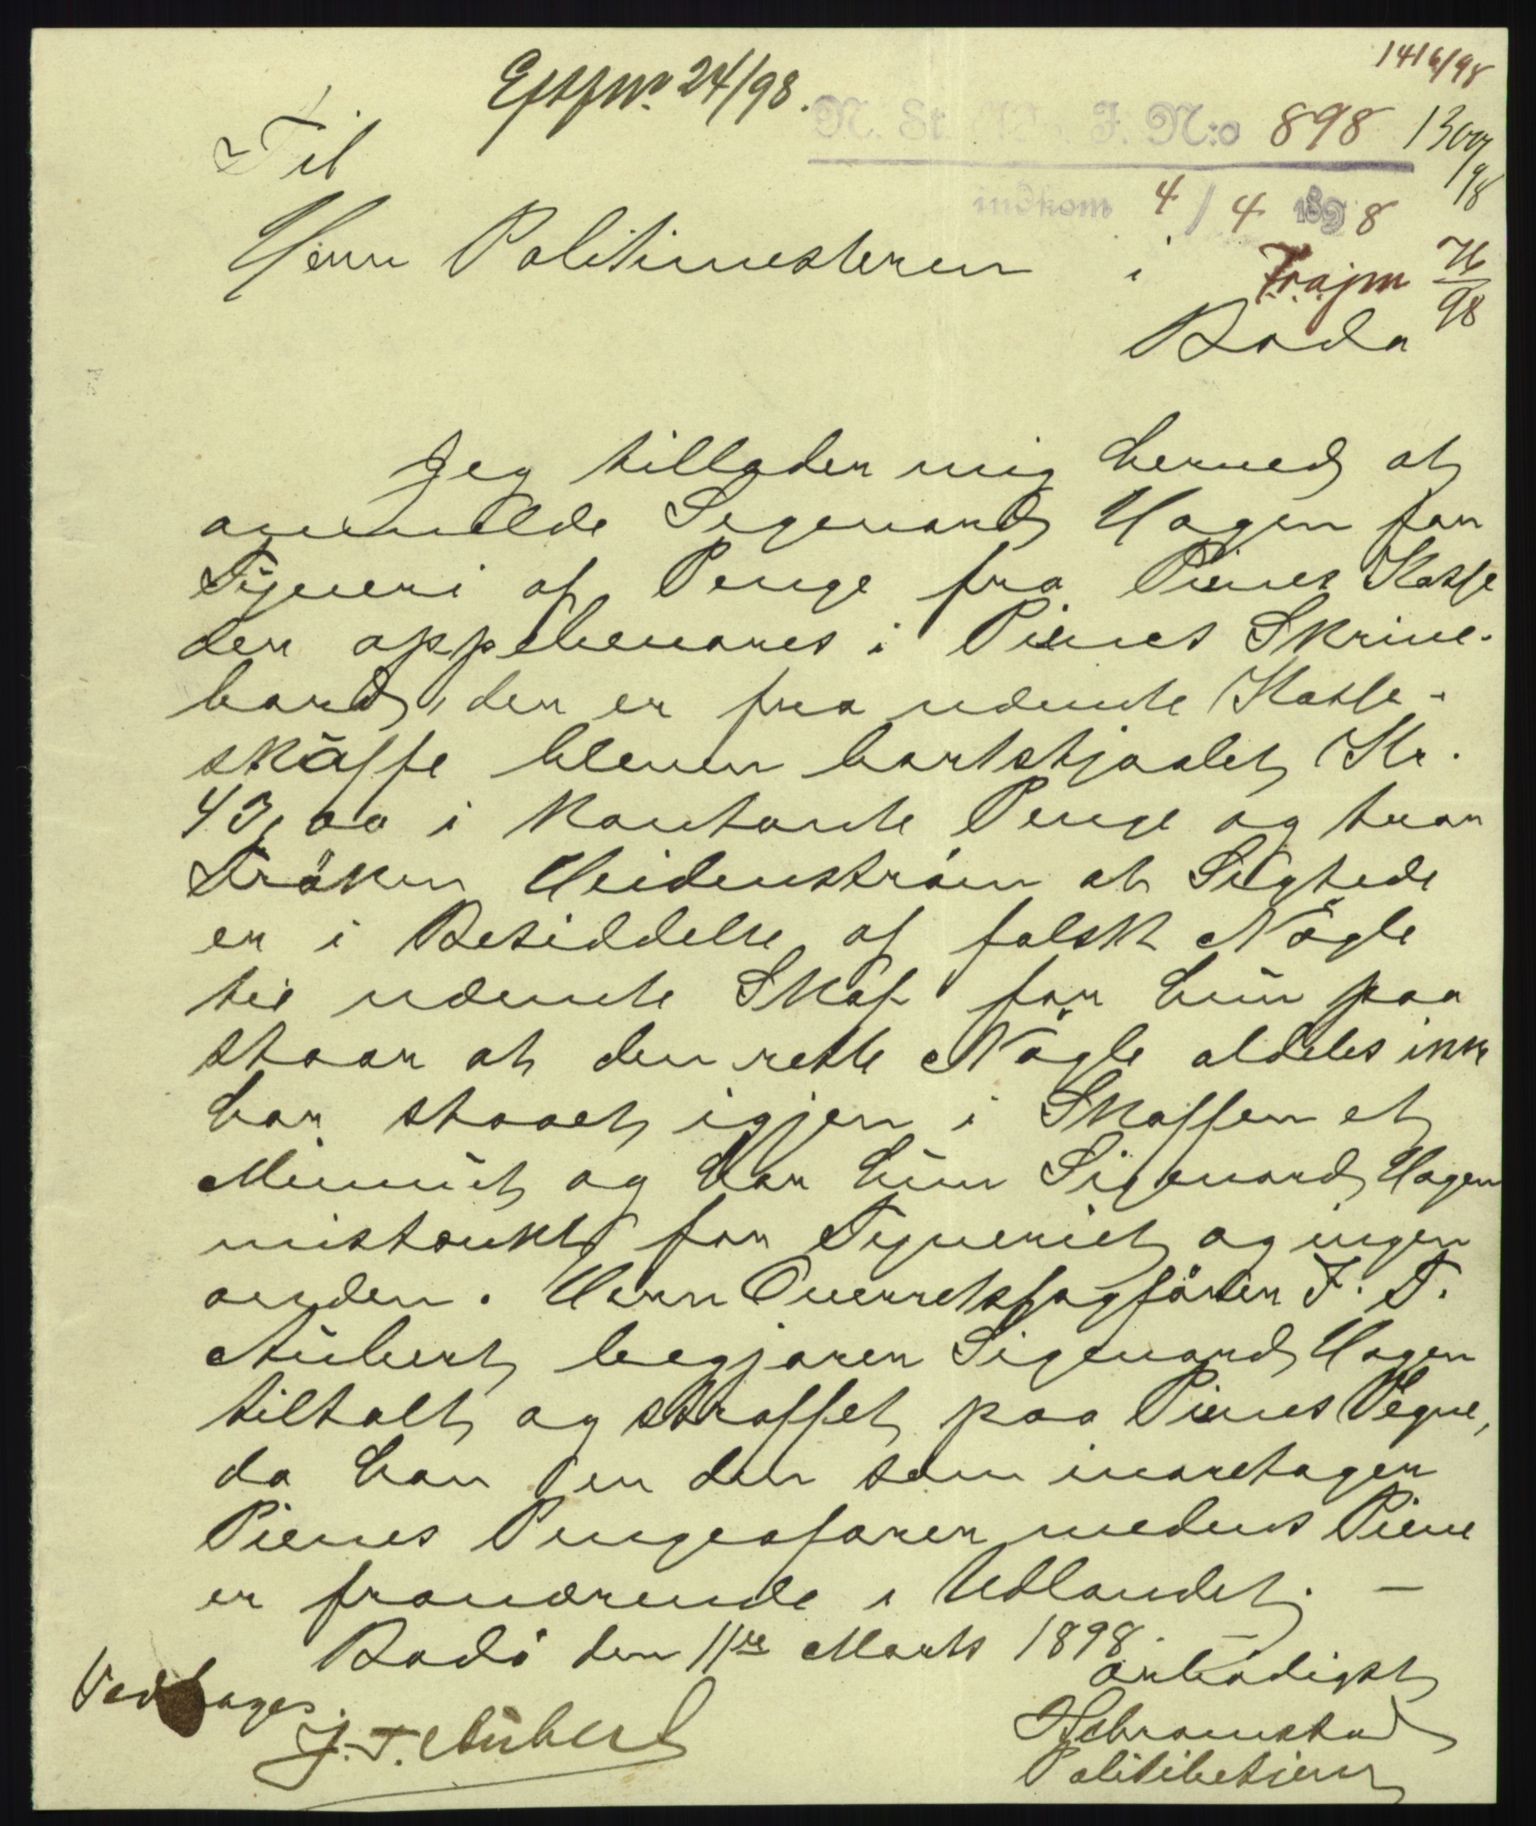 1416/98
Eftf No 24/98.
N. St. J. N:o 898 1300/98
indkom 4/4 1898
Til
Herr Politimesteren i
Frajm 76/98
Bodø
Jeg tillader mig herved at
anmelde Sigvard Hagen for
Tyveri af Penge fra Pienes Kasse
der oppebevares i Pienes Skrive-
bord, der er fra nævnte Kasse-
skuffe bleven bortstjaalet Kr.
43,00 i kontante Penge og tror
Fröken Heidenström at Sigtede
er i Besiddelse af falsk Nögle
til nævnte Skuf for hun paa
staar at den rette Nögle aldeles ikke
har staaet igjen i Skuffen et
Minut og har hun Sigvard Hagen
mistænkt for Tyveriet og ingen
anden. Herr Overretssagförer J. T.
Aubert begjærer Sigvard Hagen
tiltalt og straffet paa Pienes Vegne,
da han er den som ivaretager
Pienes Pengeaffærer medens Piene
er fraværende i Udlandet. —
Bodö den 11te Marts 1898.
ærbödigst
Vedtages
J. T. Aubert
Politibetjent